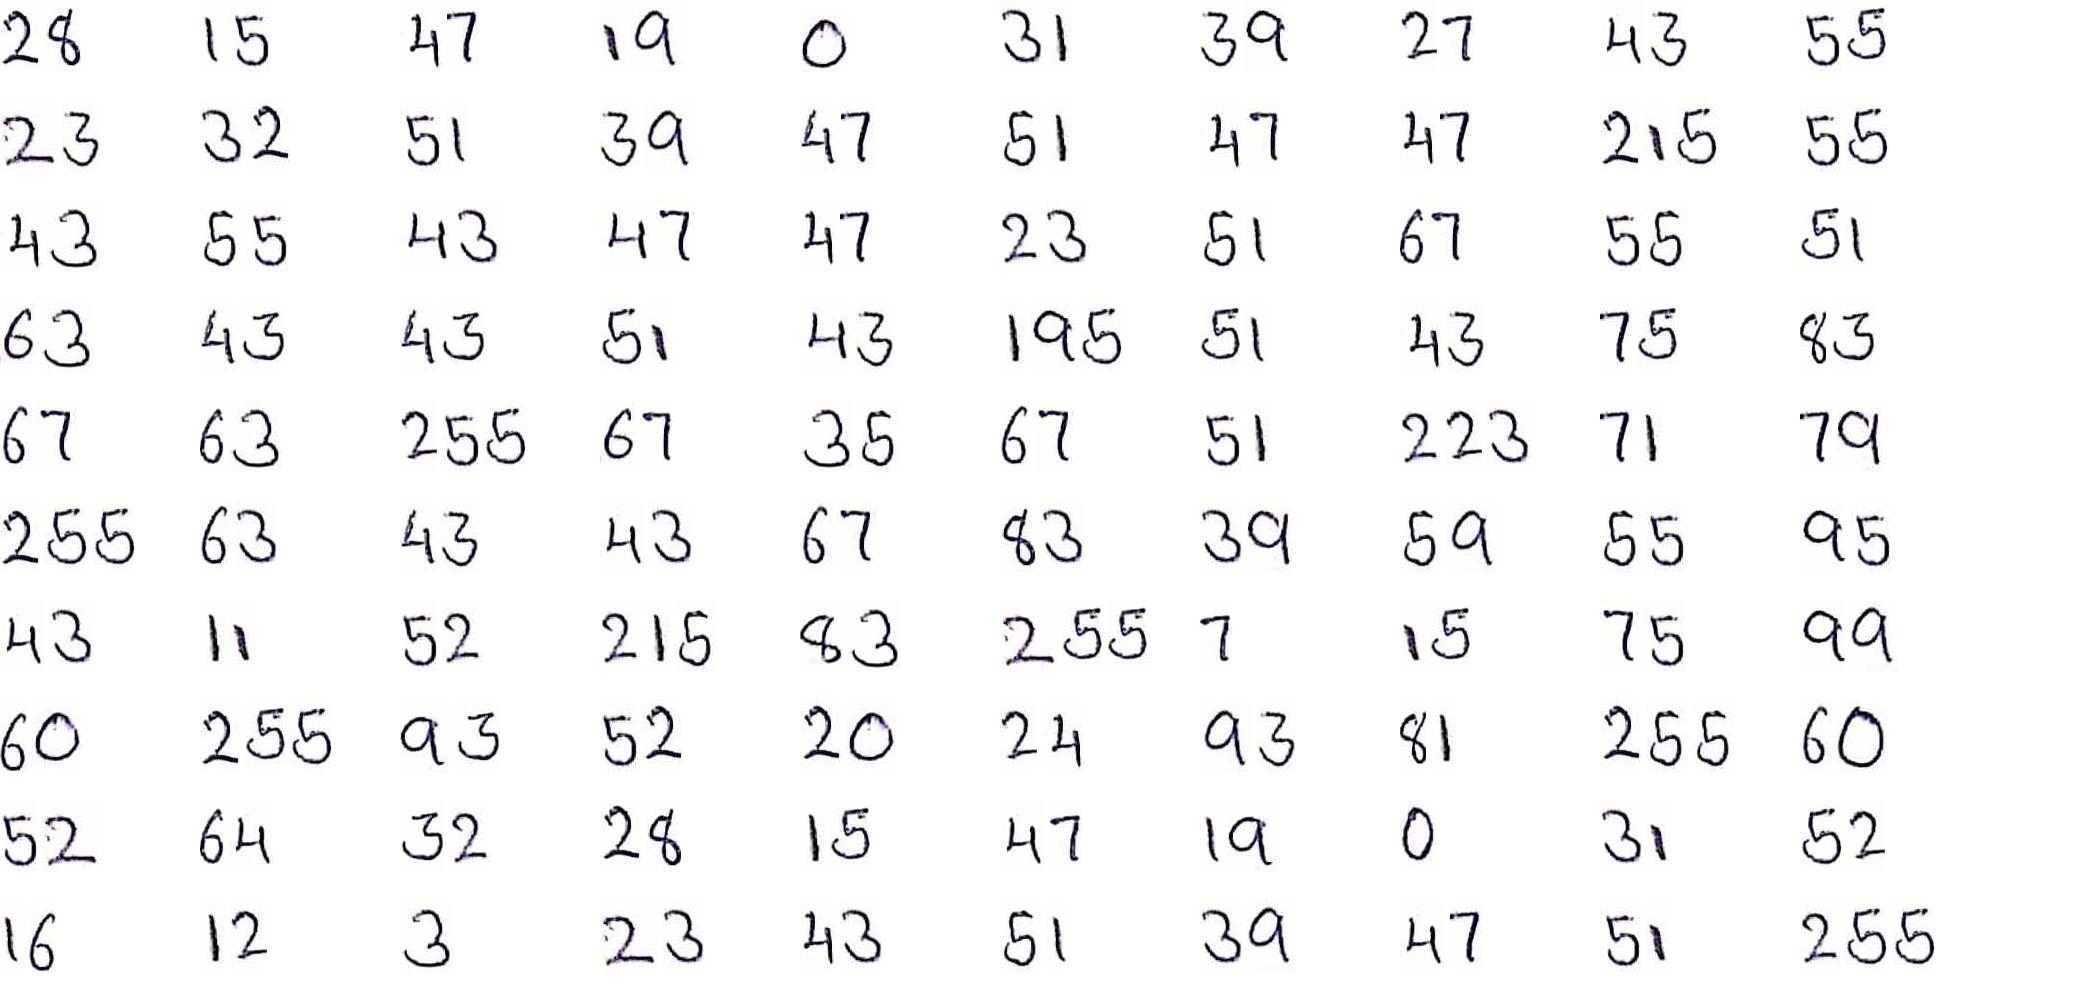 28 15 47 19 0 31 39 27 43 55
23 32 51 39 47 51 47 47 215 55
43 55 43 47 47 23 51 67 55 51
63 43 43 51 43 195 51 43 75 83
67 63 255 67 35 67 51 223 71 79
255 63 43 43 67 83 39 59 55 95
43 11 52 215 83 255 7 15 75 99
60 255 93 52 20 24 93 81 255 60
52 64 32 28 15 47 19 0 31 52
16 12 3 23 43 51 39 47 51 255